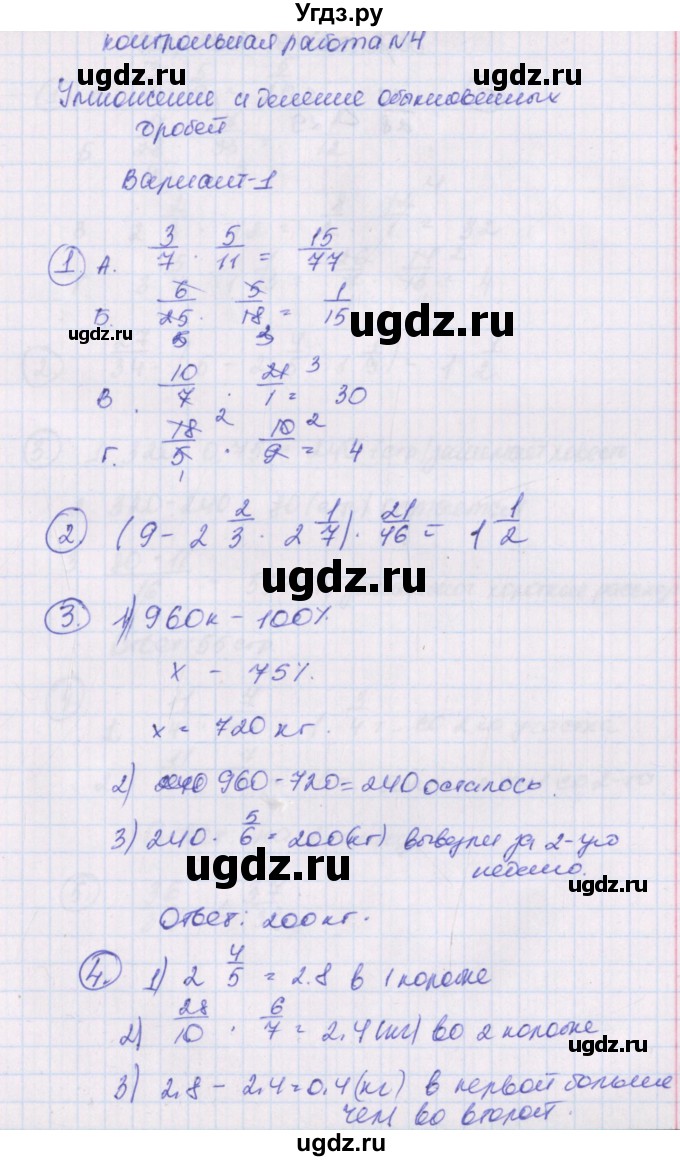 Угдз.ру
контрольная работа №4
Умножение и деление обыкновенных
дробей
Вариант-1
1. А. 3/7 · 5/11 = 15/77
Б. 6/25 · 5/18 = 1/15
5 3
В. 10/7 · 21/1 = 30
3
Г. 18/5 · 10/9 = 4
2 2
1
2. (9 - 2 2/3 · 2 1/7) · 21/46 = 1 1/2
3. 1) 960к - 100%
x - 75%.
x = 720 кг.
2) 960-720=240 осталось.
3) 240 · 5/6 = 200(кг) вывезли за 2-ую
неделю.
Ответ: 200кг.
4. 1) 2 4/5 = 2.8 в 1 короже
2) 28/10 · 6/7 = 2.4(кг) во 2 короже
3) 2.8 - 2.4=0.4(кг) в первой больше
чем во второй.
ugdz.ru
ugdz.ru
ugdz.ru
ugdz.ru
ugdz.ru
ugdz.ru
ugdz.ru
ugdz.ru
ugdz.ru
ugdz.ru
ugdz.ru
ugdz.ru
ugdz.ru